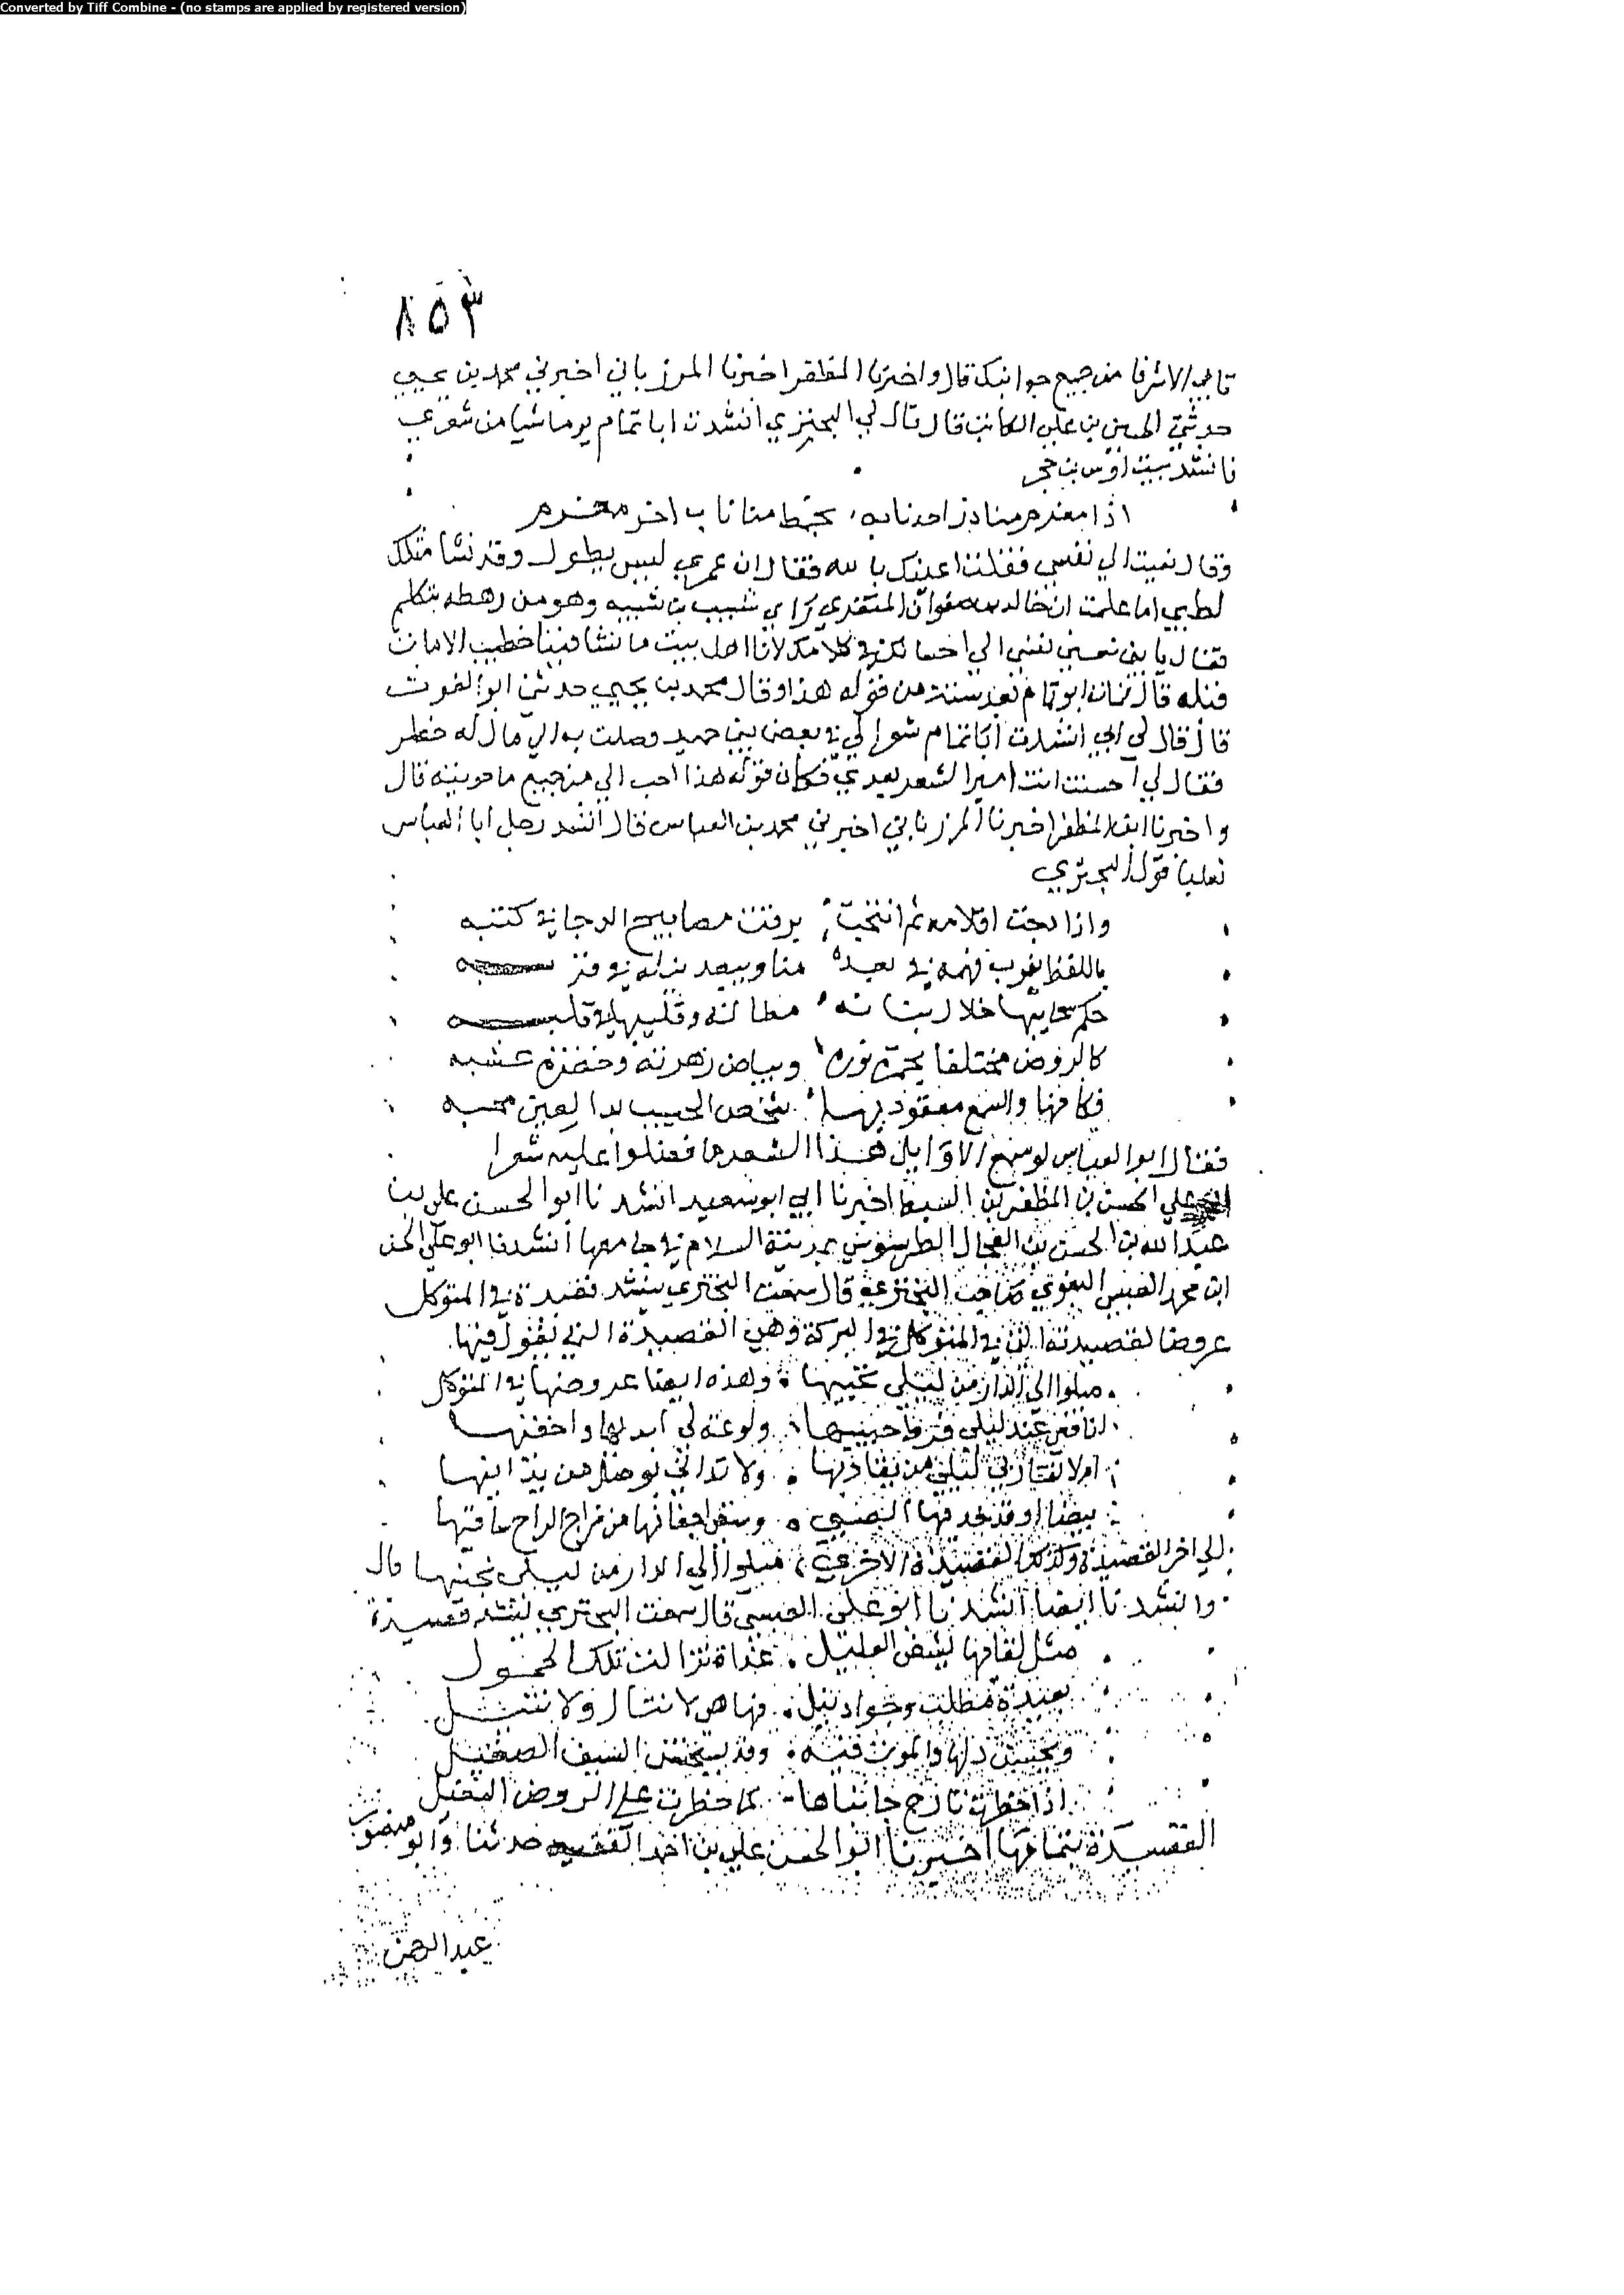 Converted by Tiff Combine - (no stamps are applied by registered version)
٨٥٣
من جميع جوانبك قال واخبرنا المظفر اخبرنا المرزباني اخبرني محمد بن يحيي
حدثني الحسين بن علي الكاتب قال قال لي البحتري انشدت ابا تمام يوما شيا من شعري
فانشد بيت اوس بن حجر
اذا مقرم منا ذرا حد نابه تخمط منا ناب اخر مقرم
وقال نعيت الي نفسي فقلت اعيذك بالله فقال ان عمري ليس يطول وقد نشا مثلك
لطيي اما علمت ان خالد بن صفوان المنقري راي شبيب بن شيبه وهو من رهطه يتكلم
فقال يا بني نعي نفسي الي احسانك في كلامك لانا اهل بيت ما نشا فينا خطيب الا مات
قبله قال فمات ابو تمام بعد سنة من قوله هذا وقال محمد بن يحيي حدثني ابو الغوث
قال قال لي ابي انشدت ابا تمام شعرا لي في بعض بني حميد وصلت به الي مال له خطر
فقال لي احسنت انت امير الشعر بعدي فكان قوله هذا احب الي من جميع ما حويته قال
واخبرنا ابن المظفر اخبرنا المرزباني اخبرني محمد بن العباس قال انشد رجل ابا العباس
ثعلبا قول البحتري
واذا دجت اقلامه ثم انتحت برقت مصابيح الدجا في كتبه
باللفظ يقرب فهمه في بعده منا ويبعد نيله في قربه
حكم سحايبها خلال بنانه هطالة وقليبها في قلبه
كالروض مختلفا بحمرة نوره وبياض زهرته وخضرة عشبه
فكانها والسمع معقود بها شخص الحبيب بدا لعين محبه
فقال ابو العباس لو سمع الاوايل هذا الشعر ما فضلوا عليه شعرا
علي الحسن بن المظفر بن السبط اخبرنا ابي ابو سعيد انشدنا ابو الحسن علي بن
عبد الله بن الحسن بن الطرسوسي بمدينة السلام في جامعها انشدنا ابو علي الحسن
ابن محمد العبسي اللغوي صاحب البحتري قال سمعت البحتري ينشد قصيدة في المتوكل
عروضا لقصيدته التي في المتوكل في البركة وهي القصيدة التي يقول فيها
ميلوا الي الدار من ليلي نحييها وهذه ايضا عروضها في المتوكل
انافعي عند ليلي فرط حبيها ولوعة لي ابديها واخفيها
ام لا تقارب ليلي من يقاربها ولا تداني بوصل من يدانيها
بيضا اوقد خديها الصبي وسقي اجفانها من مراح الراح ساقيها
الي اخر القصيدة وكذلك القصيدة الاخري ميلوا الي الدار من ليلي نحييها قال
وانشدنا ايضا انشدنا ابو علي العبسي قال سمعت البحتري ينشد قصيدة
العليل غداة تزايلت تلك الحمول
بعيدة مطلب وجواد نيل فها هي لا تنال ولا تنيل
دلها والموت فيه وقد يستحسن السيف الصقيل
اذا خطرت تارج جانباها كما خطرت علي الروض القبول
القصيدة بتمامها اخبرنا ابو الحسن علي بن احمد الفقيه حدثنا وابو منصور
عبد الرحمن